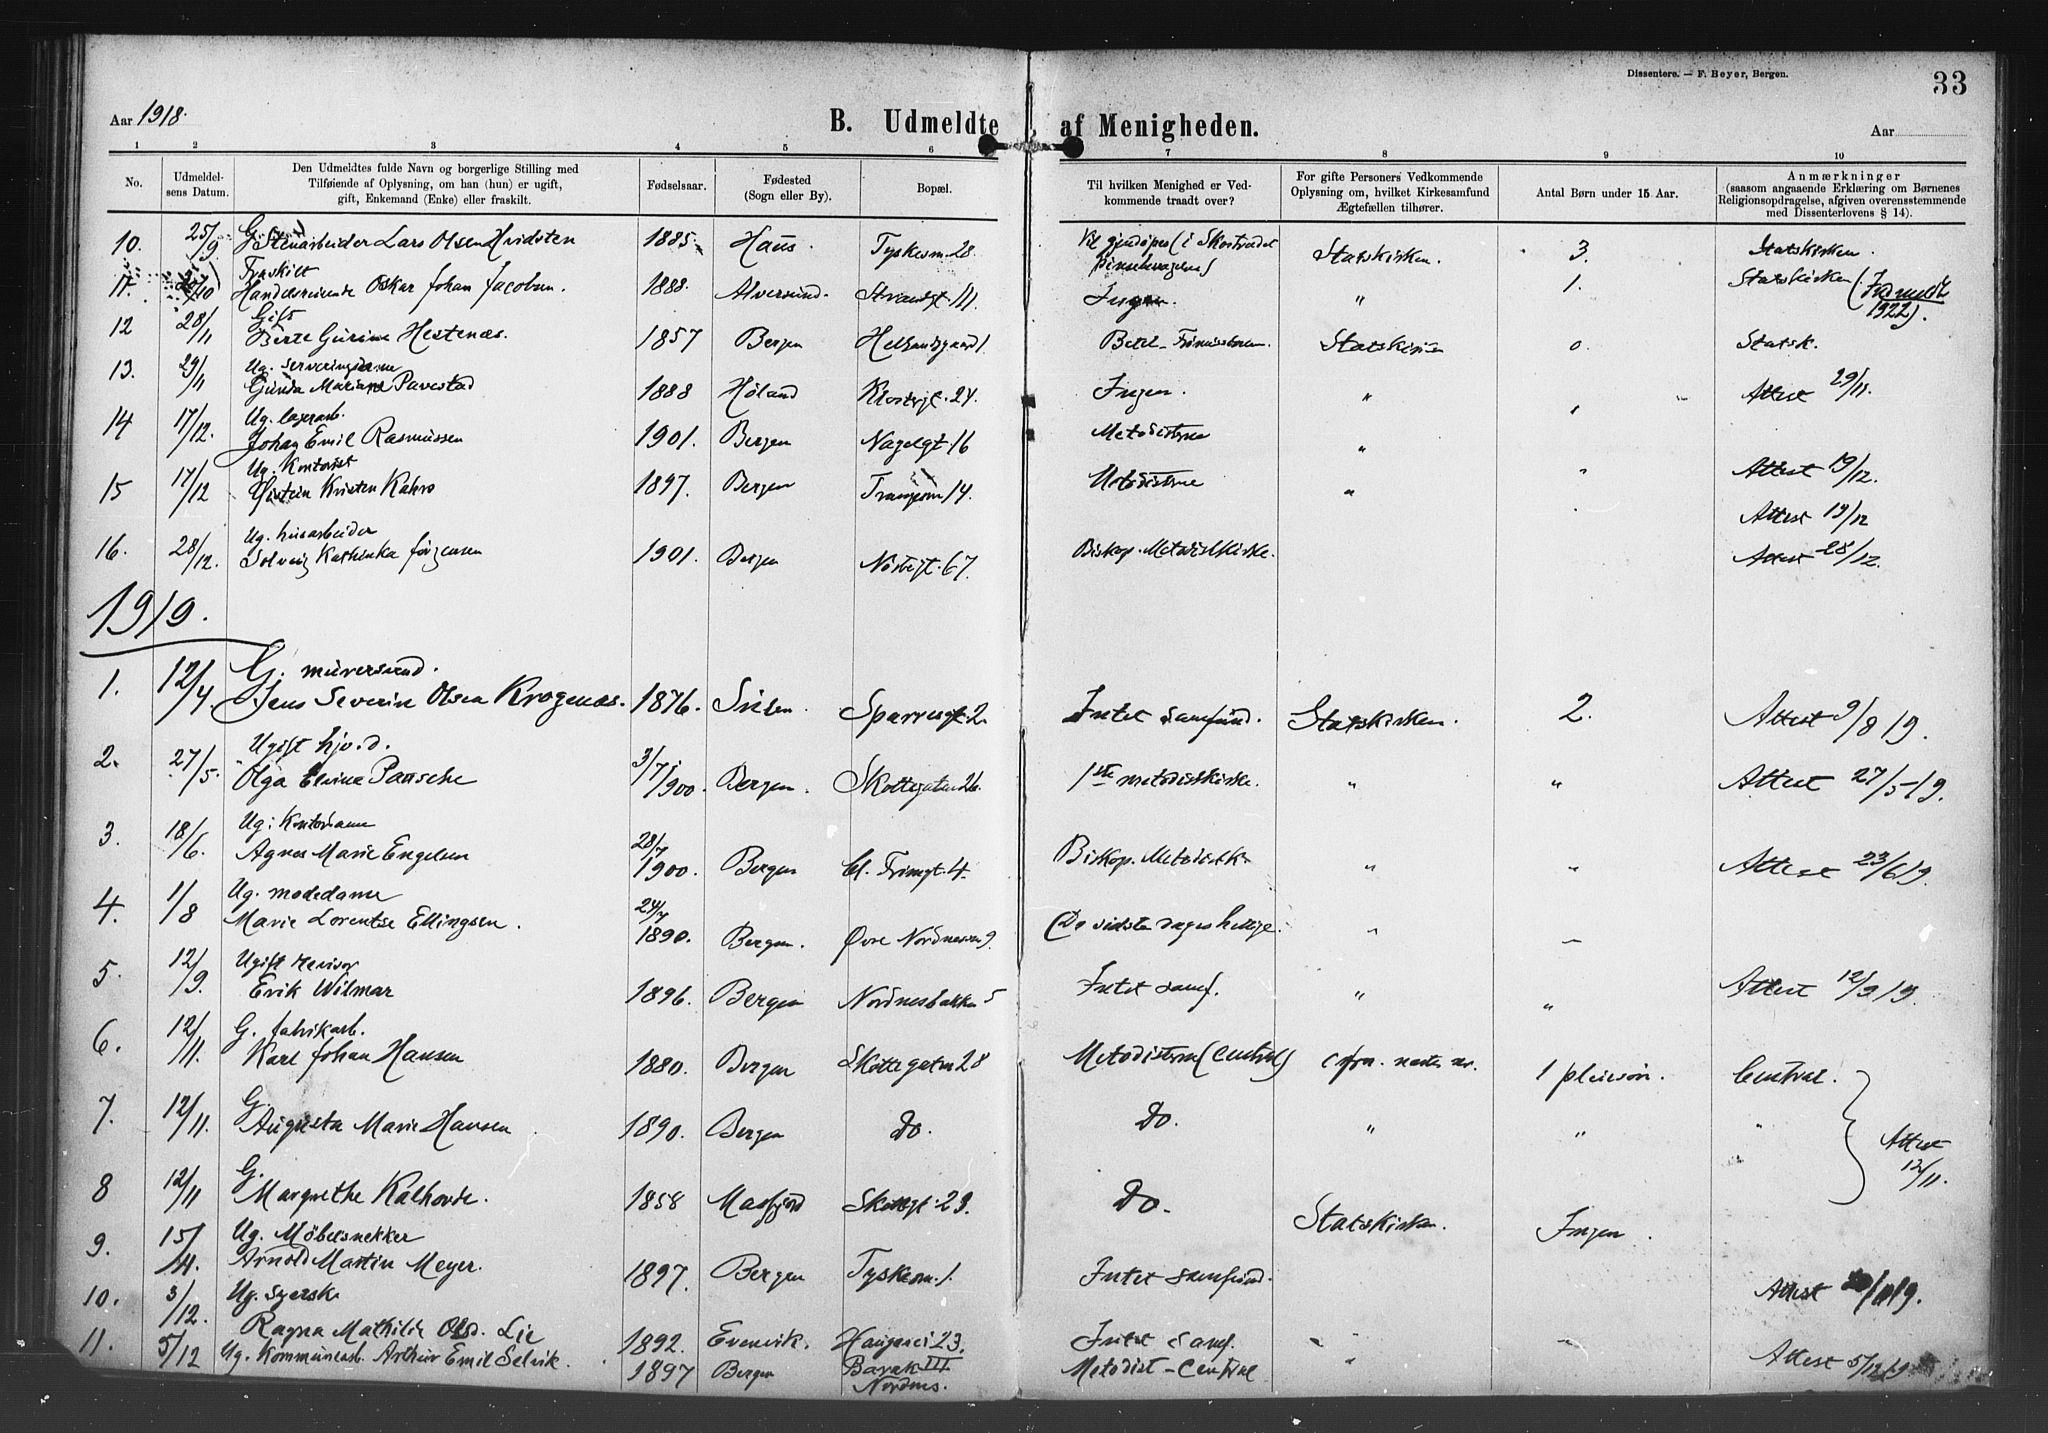 Dissentere. — F. Beyer, Bergen.
33
Aar 1918.
B. Udmeldte af Menigheden.
Aar
1 2 3 4 5 6 7 8 9 10
No.
Udmeldel-
sens Datum.
Den Udmeldtes fulde Navn og borgerlige Stilling med
Tilføiende af Oplysning, om han (hun) er ugift,
gift, Enkemand (Enke) eller fraskilt.
Fødselsaar.
Fødested
(Sogn eller By).
Bopæl.
Til hvilken Menighed er Ved-
kommende traadt over?
For gifte Personers Vedkommende
Oplysning om, hvilket Kirkesamfund
Ægtefællen tilhører.
Antal Børn under 15 Aar.
Anmærkninger
(saasom angaaende Erklæring om Børnenes
Religionsopdragelse, afgiven overensstemmende
med Dissenterlovens § 14).
10. 25/9 G. Stenarbeider Lars Olsen Hvidsten 1885 Haus. Tyskesm 28. (i Skostrædet Statskirken. 3. Statskirken.
Fraskilt
11. /10 Handelsreisende Oskar Johan Jacobsen. 1888. Alversund. Strandgt. 111. Ingen. " 1. Statskirken (Indmeldt
1922).
Gift
12 28/11 Berte Gurine Hestenæs. 1857 Bergen 1. Betel - Statskirken 0. Statsk.
Ug. Serveringsdame
13. 29/11 Gunda Mariane Pavestad 1888 Høland Klostergt. 24. Ingen. " " Attest 29/11.
Ug. lagerarb.
14 17/12. Johan Emil Rasmussen 1901. Bergen Nagelgt. 16 Metodisterne "
Ug. Kontorist Attest 19/12.
15 17/12 Øistein Kristen Kahrs 1897. Bergen 14. Metodisterne "
Attest 19/12
Ug. husarbeider
16. 28/12. Solveig Kathinka Jørgensen 1901. Bergen 67. Biskop. Metodistkirke. Attest 28/12.
1919.
G. murersvend.
1. 12/4. Jens Severin Olsen Krogenæs. 1876. Sparresgt. 2. Intet samfund. Statskirken. 2. Attest 9/8 19.
Ugift hjv. d.
2. 27/5. Olga Elvine Paasche 3/7 1900. Bergen. Skottegaten 26. 1ste metodistkirke. " " Attest 27/5-19.
Ug: Kontordame
3. 18/6. Agnes Marie Engelsen 28/7 1900. Bergen Cl. Frimgt. 4. Biskop. Metodistk. " " Attest 23/6 19.
Ug. modedame
4. 1/8 Marie Lorentse Ellingsen. 24/7 1890. Bergen. Øvre Nordnesvei 9. (De sidste dages hellige. " –
Ugift revisor
5. 12/9. Erik Wilmar 1896. Bergen Nordnesbakken 5 Intet samf. " " Attest 12/9 19.
G. fabrikarb.
6. 12/11. Karl Johan Hansen 1880. Bergen Skottegaten 28 Metodisterne (Central) næste nr. 1 pleiesøn. Central.
G.
7. 12/11. Augusta Marie Hansen 1890. Bergen Do. Do. " " " Attest
12/11.
G.
8 12/11 Margrethe Kalhovde. 1858 Masfjord Skottegt. 29. Do. Statskirken. Ingen.
Ug. Møbelsnekker
9. 15/11. Arnold Martin Meyer. 1897. Bergen Tyskesm. 1. Intet samfund.
Ug. syerske Attest /11 19.
10. 3/12. Ragna Mathilde Olsd. Lie 1892. Evenvik. Haugevei 23. Intet samf. " –
11. 5/12 Ug. Kommunearb. Arthur Emil Selvik. 1897 Bergen Barak III Metodist - Central " Attest 5/12 19
Nordnes.